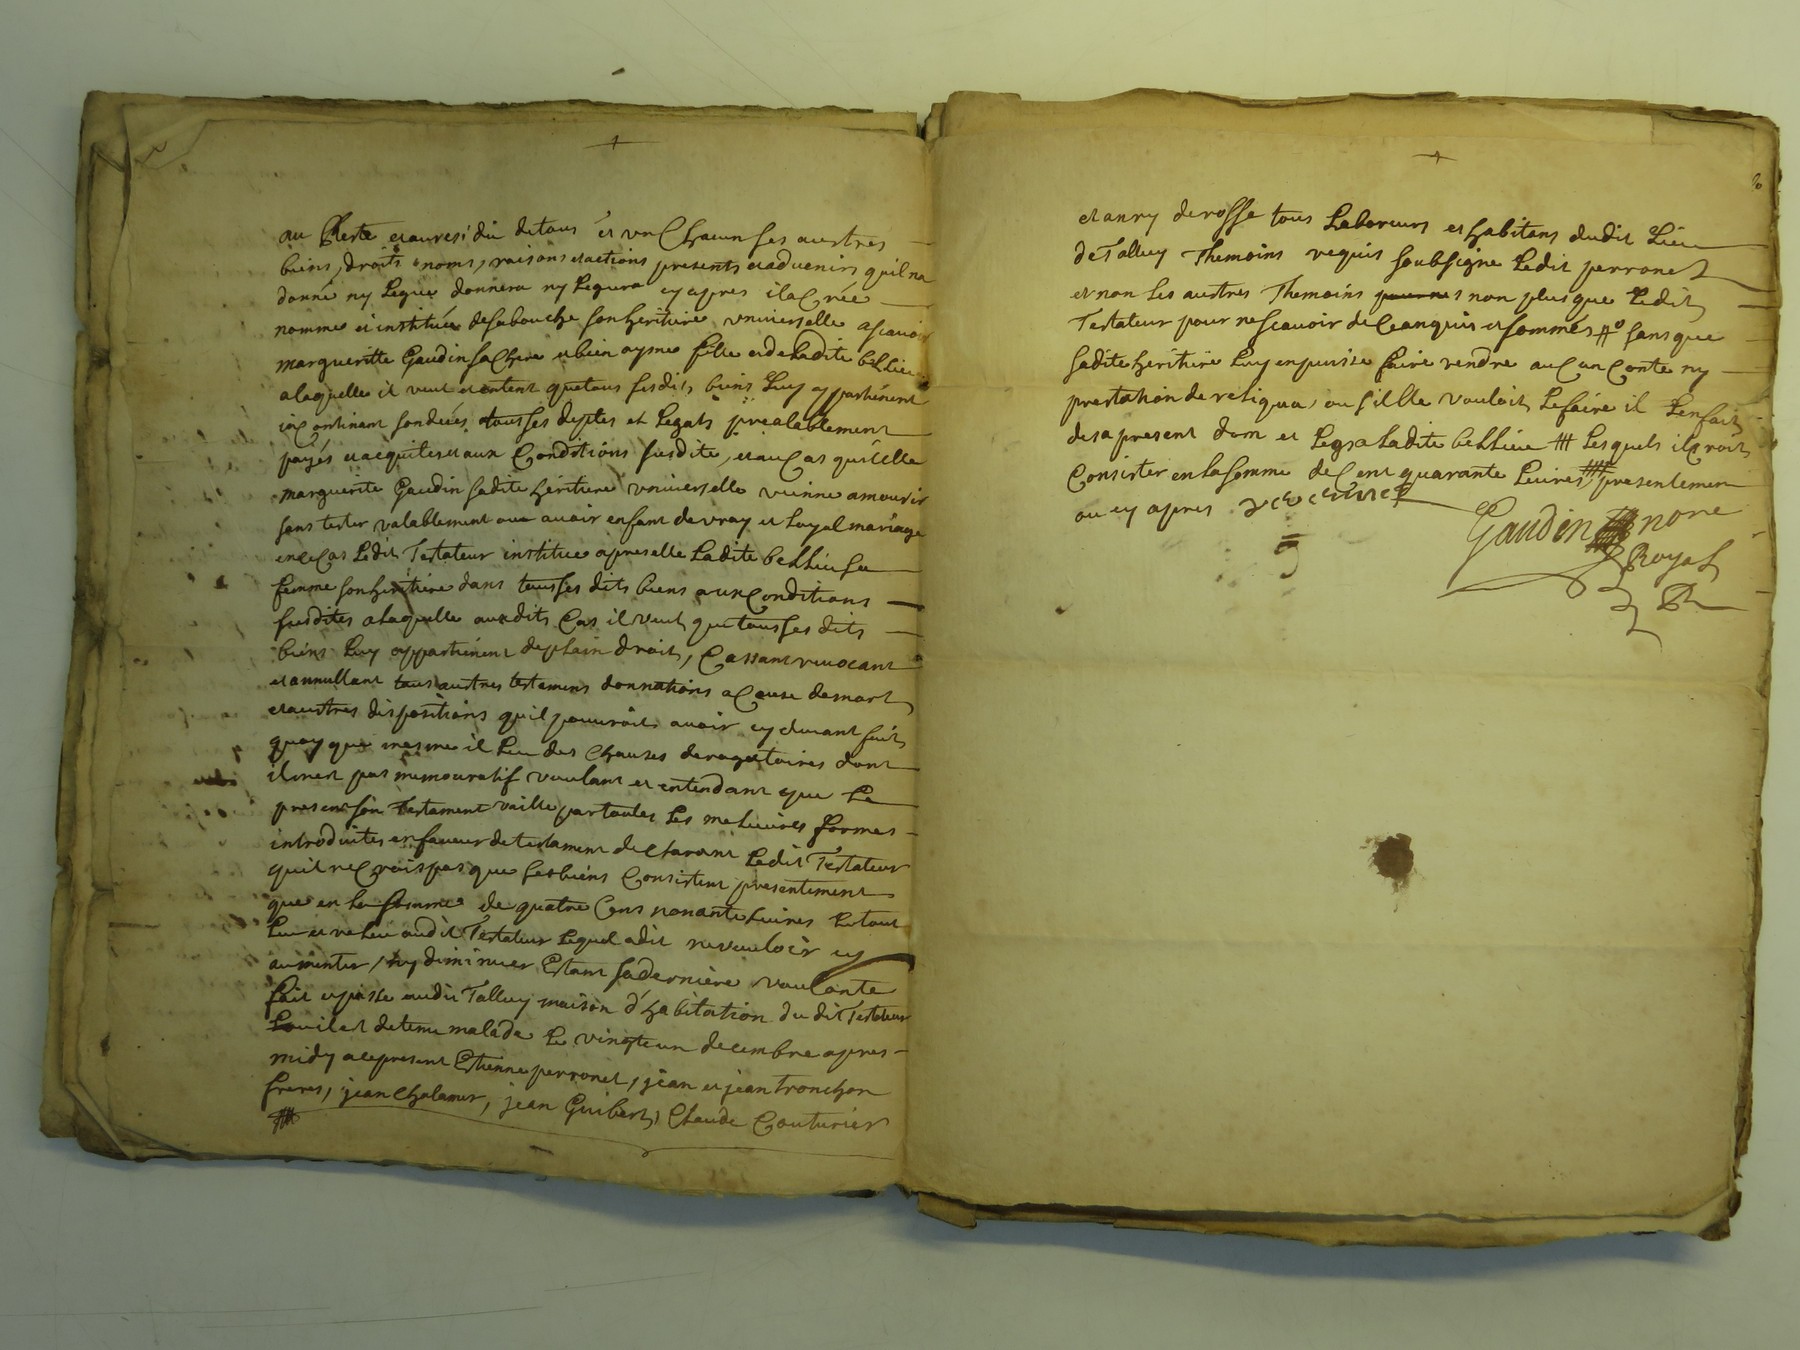 au Reste et au residu de tous et un Chacun ses austres
biens, droits noms, raisons et actions presents et advenirs quil na
donné ny Legue donnera ny Leguera cy apres il a Crée
nomme et institué de sa bouche son heritiere universelle ascavoir
margueritte Gaudin sa Chere et bien ayme fille et de Ladite bellieu
a laquelle il veut et entent que tous ses dits biens Luy appartiénent
incontinant son decés tous ses deptes et Legats prealablement
payés et acquites et aux Conditions susdite, et au Cas qu'icelle
marguerite Gaudin sadite héritiere universelle vienne a mourir
sans tester valablement ou avoir enfant de vray et Loyal mariage
en ce Cas Ledit Testateur institue apres elle Ladite bellieu sa
femme son héritiere dans tous ses dits biens aux Conditions
susdites a Laquelle audits Cas il veut que tous ses dits
biéns Luy appartiénent de plain droit, Cassant revocant
et annullant tous austres testamens donnations a Cause de mort
et austres dispositions quil pouuroit avoir cy devant fait
quoy que mesme il eu des Clauses derogatoires dont
il n'est pas memouratif voulant et entendant que Le
present son Testament vaille par toutes Les melieures formes
introduites en faveur de testament declarant Ledit Testateur
quil ne Croit pas que ses biéns Consistent presentement
que en la somme de quatre Cens nonante Livres Le tout
Leu et releu audit Testateur Lequel a dit ne vouloir cy
aumenter, ny diminuer Estant sa derniére voulante
fait et passe audit Talluy maison d'habitation du dit Testateur
ou il est detenu malade Le vingteun decembre apres
midy a ce present Estienne perronet, jean et jean tronchon
freres, jean Chalamel, jean Guibert, Claude Couturier
et anry derosse tous Laboreurs et habitans dudit Lieu
de Talluy Themoins requis soubsigne Ledit perronet
et non Les austres Themoins non plus que Ledit
Testateur pour ne scavoir de Ce anquis et sommés sans que
sadite heritiere Luy en puisse faire rendre aucun Conte ny
prestation de reliqua, ou si Elle vouloit Le faire il Len fait
des a present dom et Legs a Ladite bellieu Lesquels il Croit
Consister en la somme de Cent quarante Livres presentement
ou cy apres
Gaudin nore
Royal